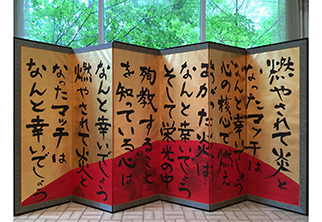 燃やされて炎と
なったマッチは
なんと幸いでしょう
心の核心 燃え
あがった火は
なんと幸いでしょう
そして栄光の中
殉教すること
を知っている心は
なんと幸いでしょう
燃やされて炎と
なったマッチは
なんと幸いでしょう